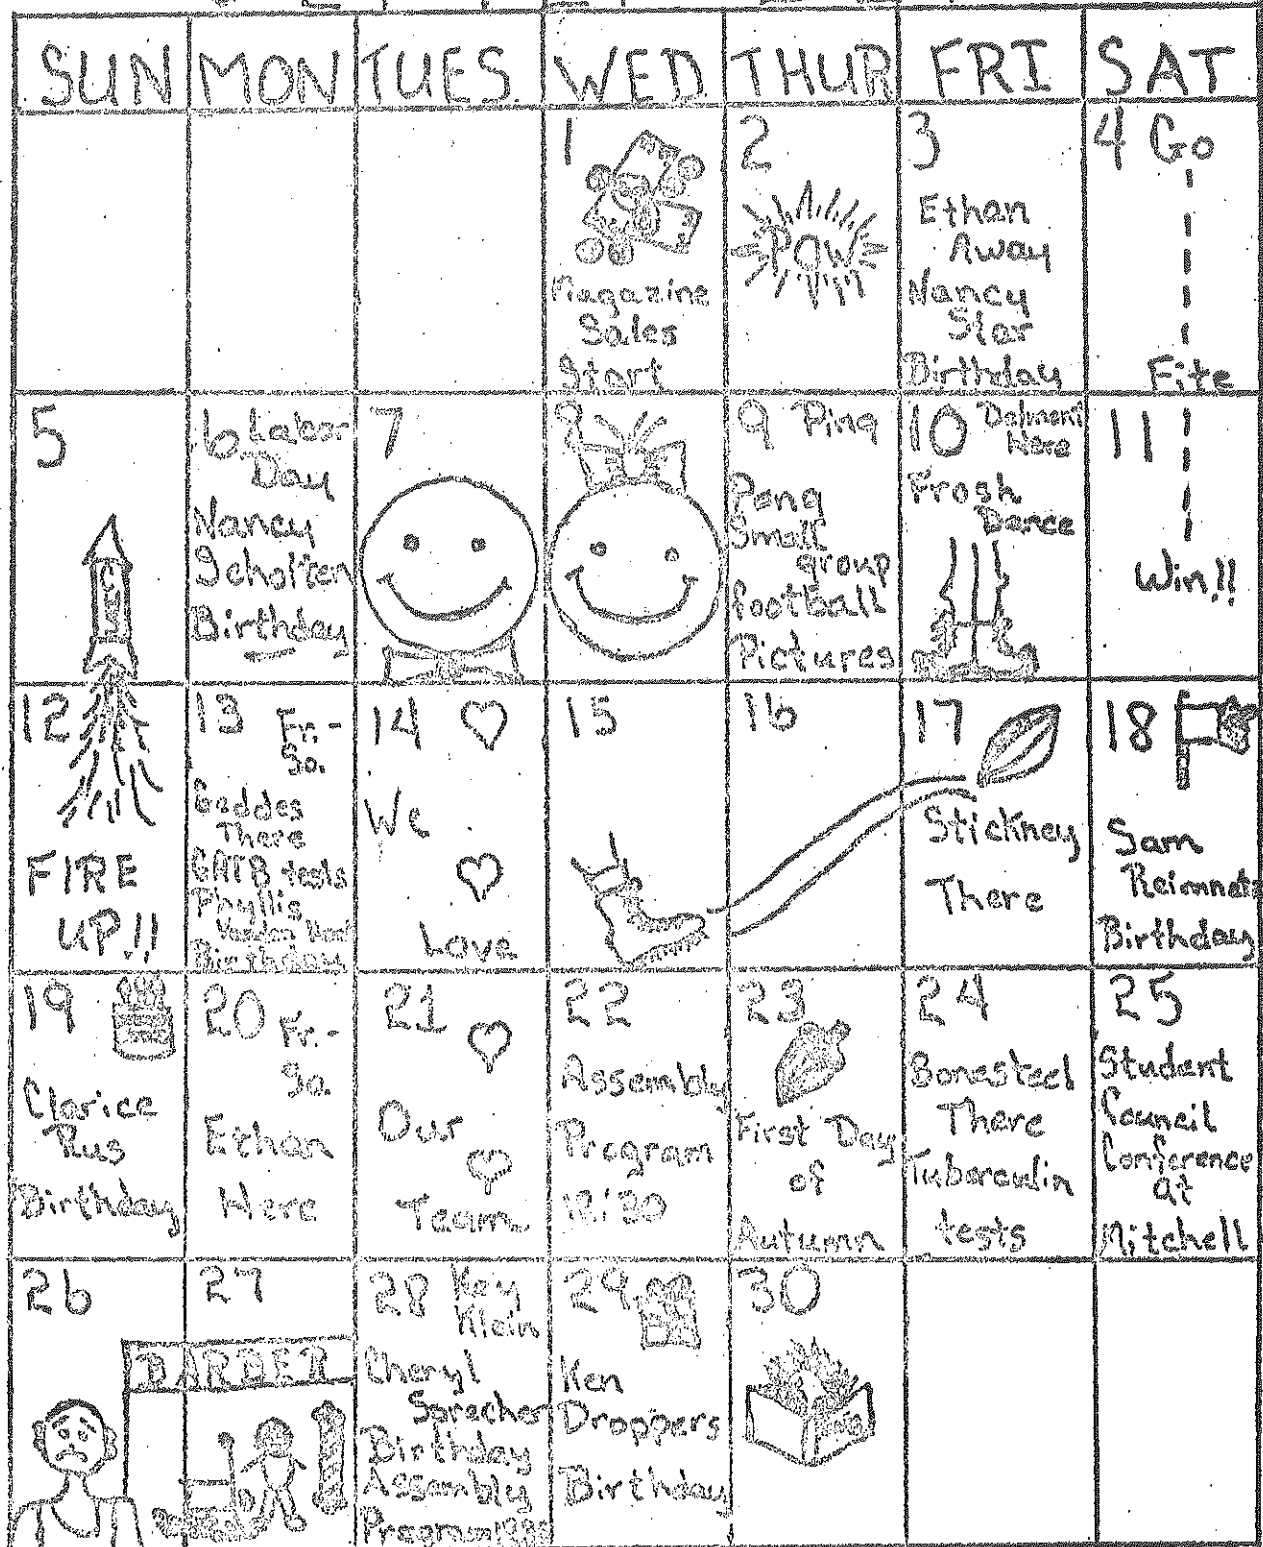 SUN MON TUES. WED THUR FRI SAT
1
Magazine
Sales
Start
2
POW
3
Ethan
Away
Nancy
Star
Birthday
4 Go
Fite
5
6 Labor
Day
Nancy
Scholten
Birthday
7
8
9 Ping
Pong
Small
group
football
Pictures
10
Here
Frosh
Dance
11
Win!!
12
FIRE
UP!!
13 Fr.-
So.
Geddes
There
GATB tests
Phyllis
Birthday
14
We
Love
15
16
17
Stickney
There
18
Sam
Birthday
19
Clarice
Rus
Birthday
20 Fr.-
So.
Ethan
Here
21
Our
Team
22
Assembly
Program
12:30
23
First Day
of
Autumn
24
Bonesteel
There
Tuberculin
tests
25
Student
Council
Conference
at
Mitchell
26
27
BARBER
28 Kay
Klein
Cheryl
Sprecher
Birthday
Assembly
Program
29
Ken
Droppers
Birthday
30